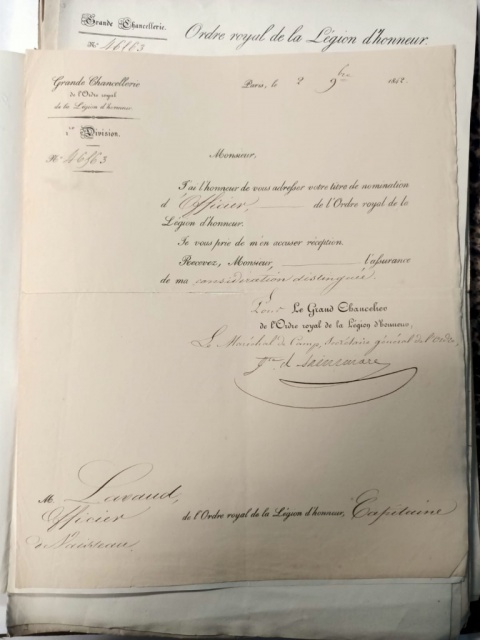 Grande Chancellerie.
Ordre royal de la Légion d'honneur.
Nº 46163
Grande Chancellerie
de l'Ordre royal
de la Légion d'honneur
Paris, le 2 9bre 184
1re Division.
Nº 46163
Monsieur,
J'ai l'honneur de vous adresser votre titre de nomination
d'Officier, de l'Ordre royal de la
Légion d'honneur.
Je vous prie de m'en accuser réception.
Recevez, Monsieur, l'assurance
de ma considération distinguée.
Pour Le Grand Chancelier
de l'Ordre royal de la Légion d'honneur,
Le Maréchal de Camp, Secrétaire général de l'Ordre
M. Lavaud,
Officier de l'Ordre royal de la Légion d'honneur, Capitaine
de Vaisseau.